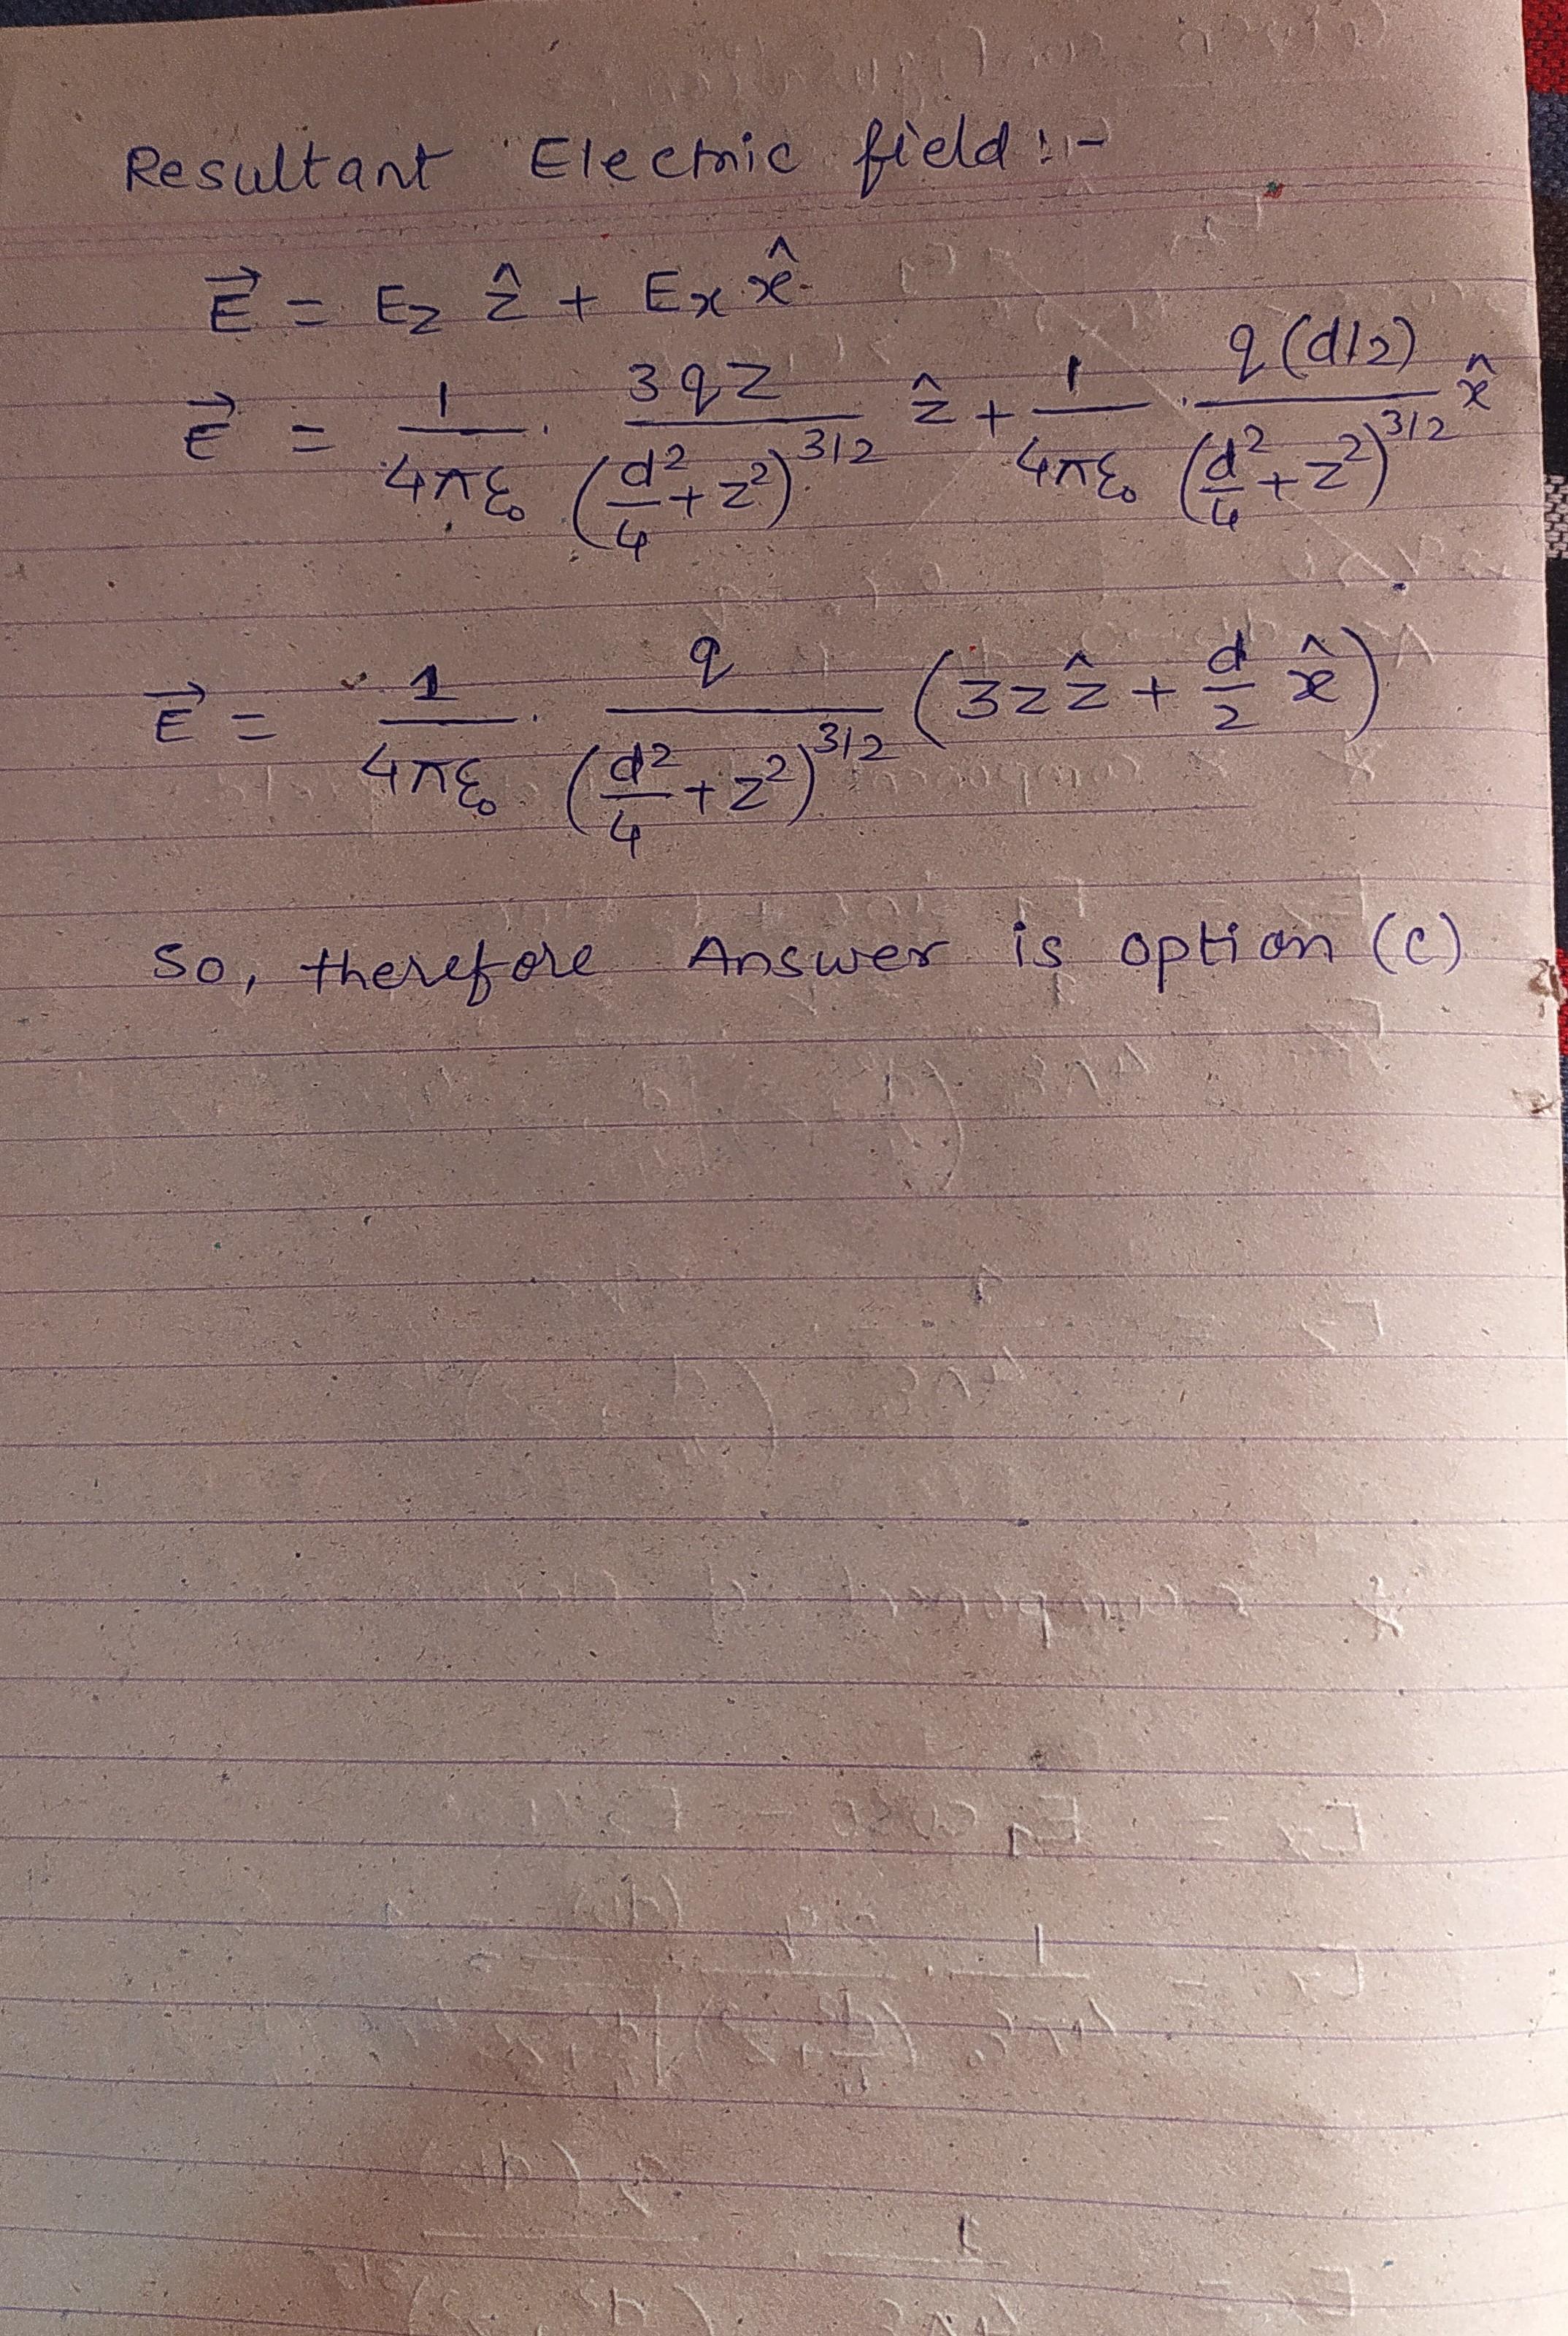 Resultant Electric field :-
E⃗ = Ez ẑ + Ex x̂
E⃗ = 1/4πε₀ · 3qz/(d²/4 + z²)^3/2 ẑ + 1/4πε₀ · q(d/2)/(d²/4 + z²)^3/2 x̂
E⃗ = 1/4πε₀ · q/(d²/4 + z²)^3/2 (3zẑ + d/2 x̂)
So, therefore Answer is option (c)